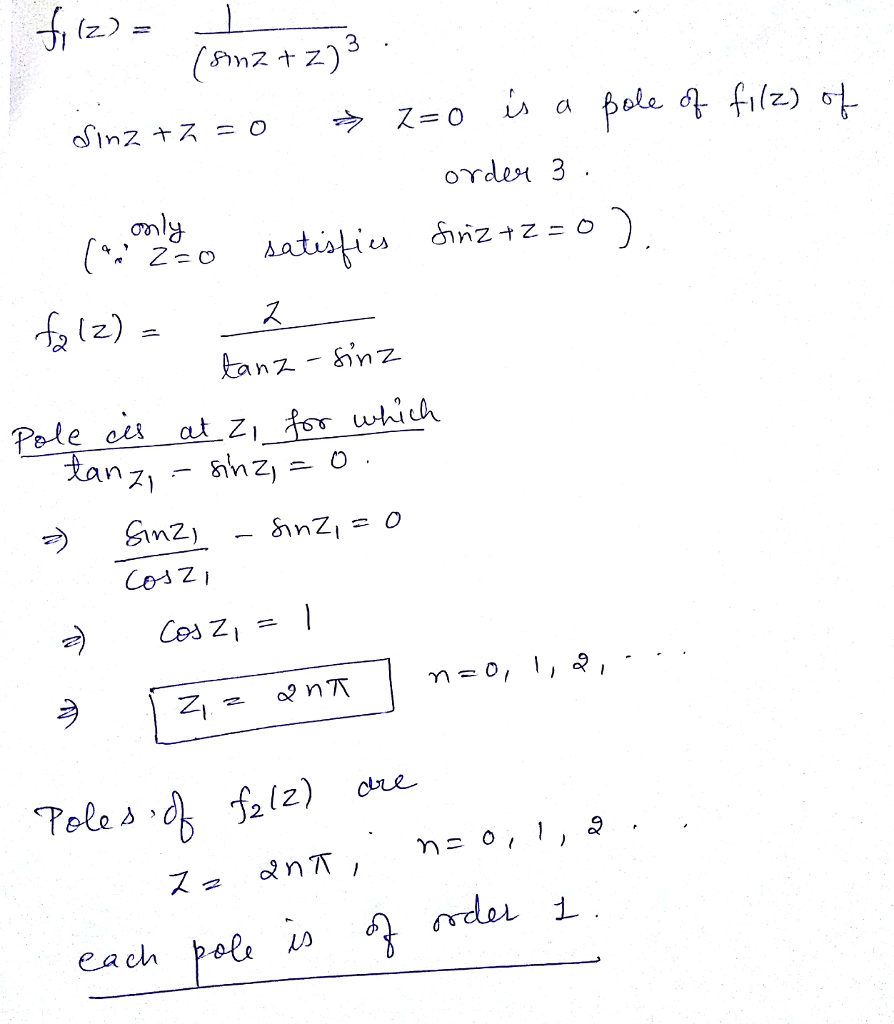 f₁(z) = 1 / (sinz + z)³ .
sinz + z = 0 ⇒ z=0 is a pole of f₁(z) of
order 3 .
(∵ only z=0 satisfies sinz+z=0 ).
f₂(z) = z / (tanz - sinz)
Pole is at z₁ for which
tan z₁ - sin z₁ = 0 .
⇒ sinz₁ / cosz₁ - sinz₁ = 0
⇒ cos z₁ = 1
⇒ z₁ = 2nπ n=0, 1, 2, ...
Poles of f₂(z) are
z = 2nπ, n=0, 1, 2 . .
each pole is of order 1.